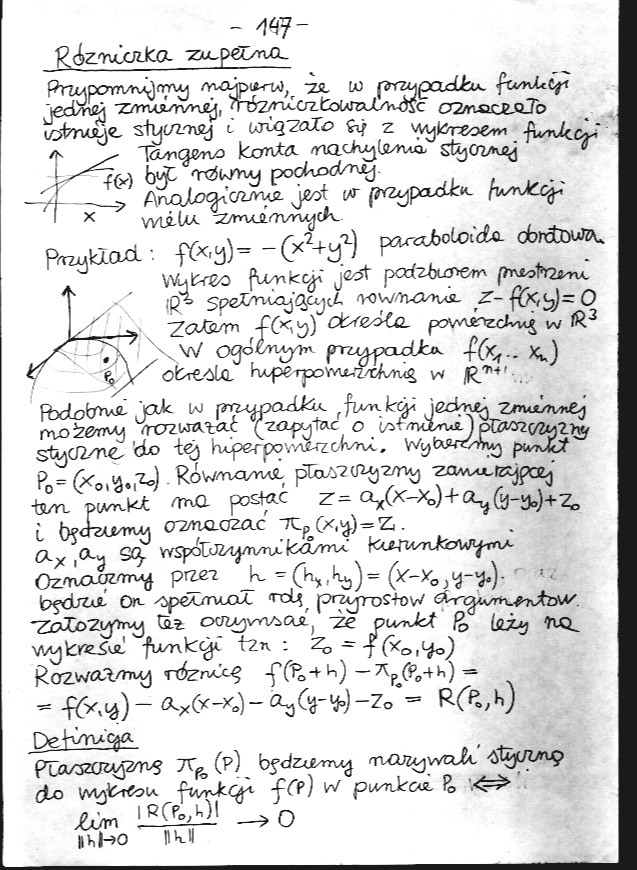 - 147 -
Różniczka zupełna
Przypomnijmy najpierw, że w przypadku funkcji
jednej zmiennej, różniczkowalność oznaczało
istnieje stycznej i wiązało się z wykresem funkcji
Tangens konta nachylenia stycznej
f(x) być równy pochodnej.
x
Analogicznie jest w przypadku funkcji
wielu zmiennych.
Przykład: f(x,y) = -(x²+y²) paraboloida obrotowa.
Wykres funkcji jest podzbiorem przestrzeni
ℝ³ spełniających równanie z-f(x,y)=0
Zatem f(x,y) określa powierzchnię w ℝ³
P₀
W ogólnym przypadku f(x₁...xₙ)
określa hiperpowierzchnię w ℝⁿ⁺¹...
Podobnie jak w przypadku funkcji jednej zmiennej
możemy rozważać (zapytać o istnienie) płaszczyzny
styczne do tej hiperpowierzchni. Wybierzmy punkt
P₀=(x₀,y₀,z₀). Równanie płaszczyzny zawierającej
ten punkt ma postać z=aₓ(x-x₀)+a_y(y-y₀)+z₀
i będziemy oznaczać π_P₀(x,y)=z.
aₓ, a_y są współczynnikami kierunkowymi
Oznaczmy przez h = (hₓ,h_y) = (x-x₀, y-y₀).
będzie on spełniał rolę przyrostów argumentów.
Założymy też oczywiście, że punkt P₀ leży na
wykresie funkcji tzn: z₀ = f(x₀,y₀)
Rozważmy różnicę f(P₀+h) - π_P₀(P₀+h) =
= f(x,y) - aₓ(x-x₀) - a_y(y-y₀) - z₀ = R(P₀,h)
Definicja
Płaszczyznę π_P₀(P) będziemy nazywali styczną
do wykresu funkcji f(P) w punkcie P₀ ⟺
lim |R(P₀,h)| / ‖h‖ → 0
‖h‖→0